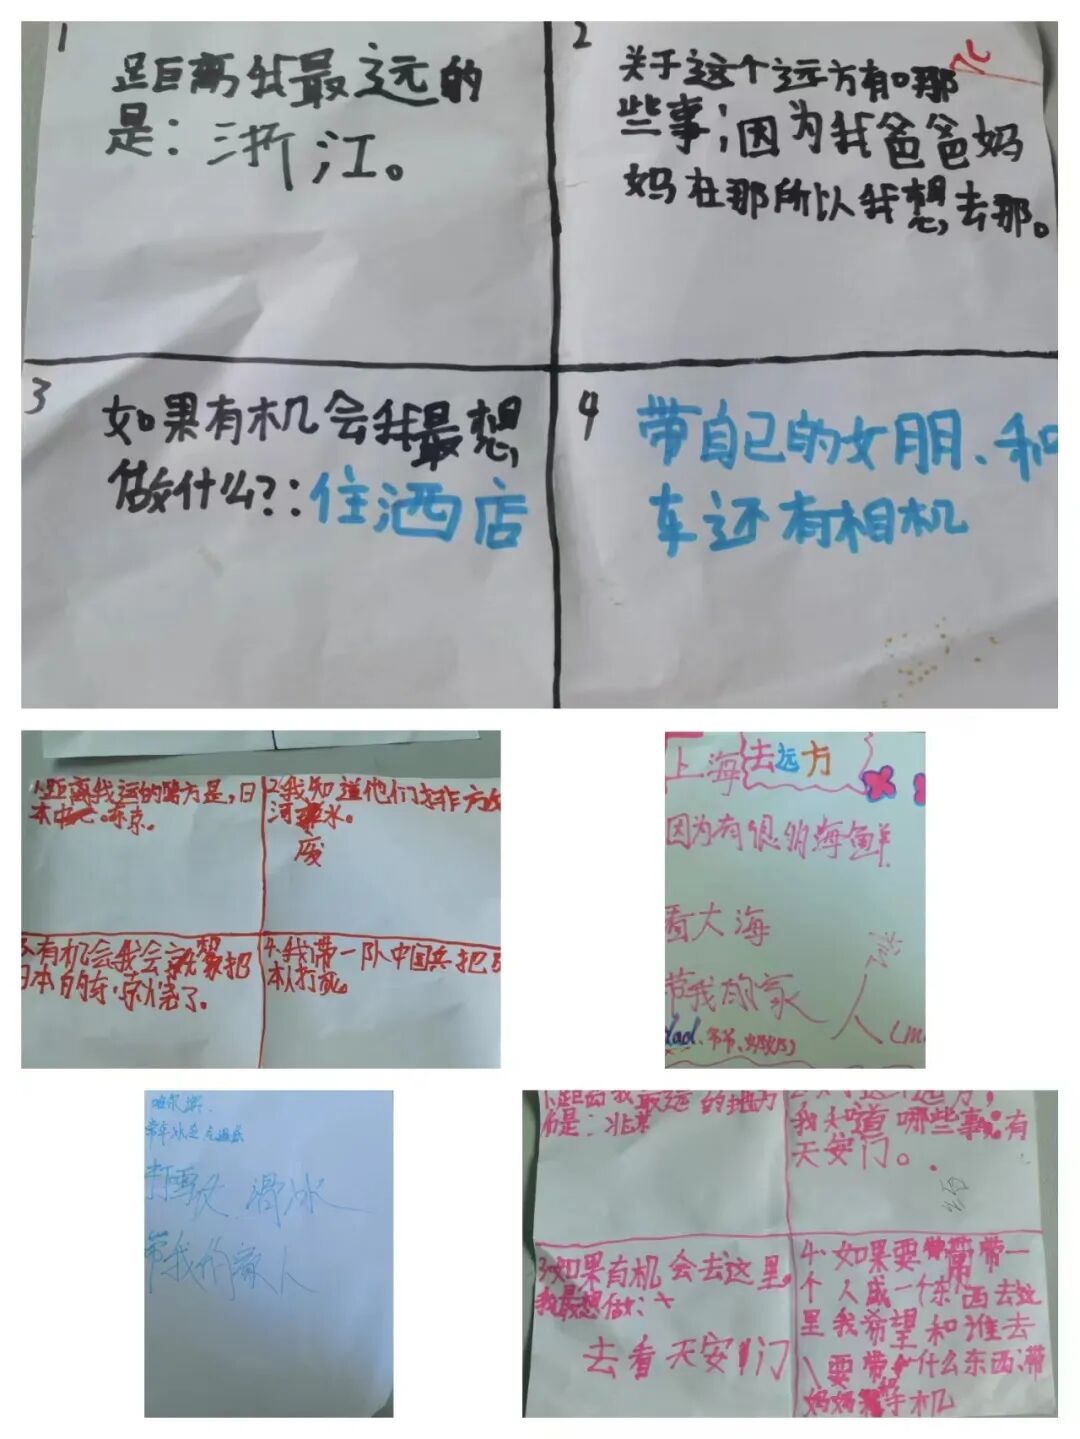 1
距离我最远的
是：浙江。
2
关于这个远方有哪
些事；因为我爸爸妈
妈在那所以我想去那。
3
如果有机会我最想
做什么?：住洒店
4
带自己的女朋、和
车还有相机
1.距离我远的地方是，日
本中心。东京。
2.我知道他们排
河水。
废
3.有机会我会想把
日本的东京烧了。
4.我带一队中国兵把日
本人打死。
上海去远方
因为有很多海鲜
看大海
带我的家人
dad、爷爷、奶奶)
哈尔滨
打雪仗 滑冰
带我的家人
1.距离我最远的地方
是：北京
我知道哪些事。有
天安门。
3.如果有机会去这里，
我最想做：
去看天安门
4、如果要带一
个人或一个东西去这
里我希望和谁去
要带什么东西：带
妈妈 手机